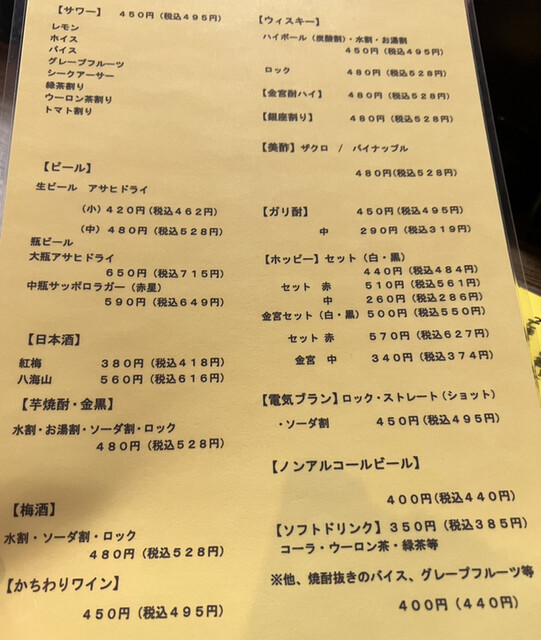 【サワー】 450円(税込495円)
レモン
ホイス
バイス
グレープフルーツ
シークアーサー
緑茶割り
ウーロン茶割り
トマト割り
【ビール】
生ビール アサヒドライ
(小)420円(税込462円)
(中)480円(税込528円)
瓶ビール
大瓶アサヒドライ
650円(税込715円)
中瓶サッポロラガー(赤星)
590円(税込649円)
【日本酒】
紅梅 380円(税込418円)
八海山 560円(税込616円)
【芋焼酎・金黒】
水割・お湯割・ソーダ割・ロック
480円(税込528円)
【梅酒】
水割・ソーダ割・ロック
480円(税込528円)
【かちわりワイン】
450円(税込495円)
【ウィスキー】
ハイボール(炭酸割)・水割・お湯割
450円(税込495円)
ロック 480円(税込528円)
【金宮酎ハイ】 480円(税込528円)
【銀座割り】 480円(税込528円)
【美酢】ザクロ / パイナップル
480円(税込528円)
【ガリ酎】 450円(税込495円)
中 290円(税込319円)
【ホッピー】セット(白・黒)
440円(税込484円)
セット 赤 510円(税込561円)
中 260円(税込286円)
金宮セット(白・黒)500円(税込550円)
セット 赤 570円(税込627円)
金宮 中 340円(税込374円)
【電気ブラン】ロック・ストレート(ショット)
・ソーダ割 450円(税込495円)
【ノンアルコールビール】
400円(税込440円)
【ソフトドリンク】350円(税込385円)
コーラ・ウーロン茶・緑茶等
※他、焼酎抜きのバイス、グレープフルーツ等
400円(440円)